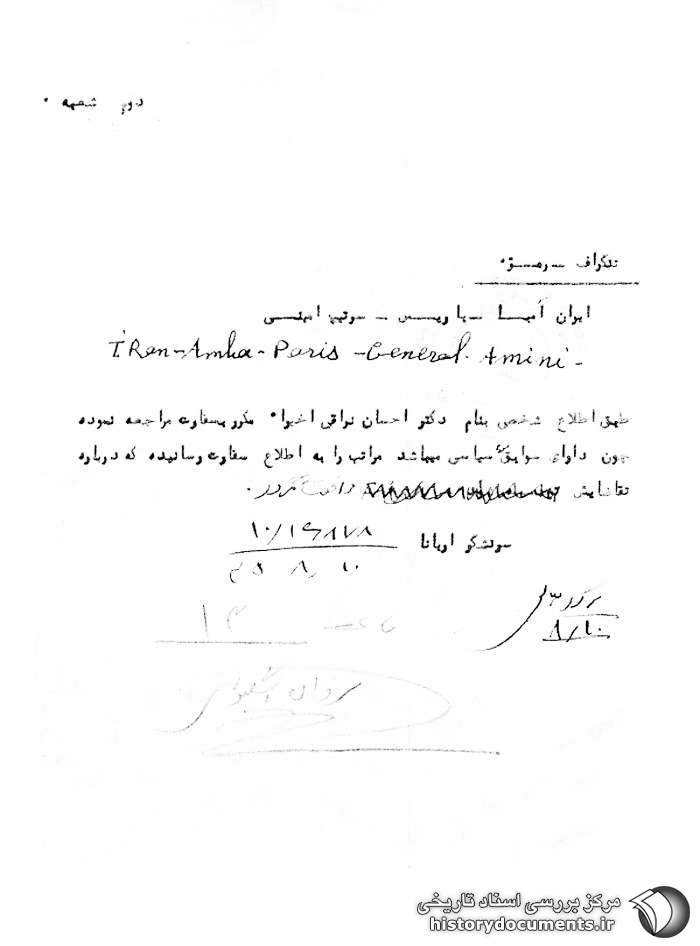 دوم شعبه
تلگراف رمز
ایران آمبا – پاریس – سرتیپ امینی
IRan-Amba-Paris-General Amini-
طبق اطلاع شخصی بنام دکتر احسان نراقی اخیرا" مکرر بسفارت مراجعه نموده
چون دارای سوابق سیاسی میباشد مراتب را به اطلاع سفارت رسانیده که درباره
تقاضایش گردد.
سرلشگر آریانا ۱۰/۱۶۸۷۸
۳۵ ۸/۱۰
۸/۱۰
ساعت ۱۳
مرکز بررسی اسناد تاریخی
historydocuments.ir